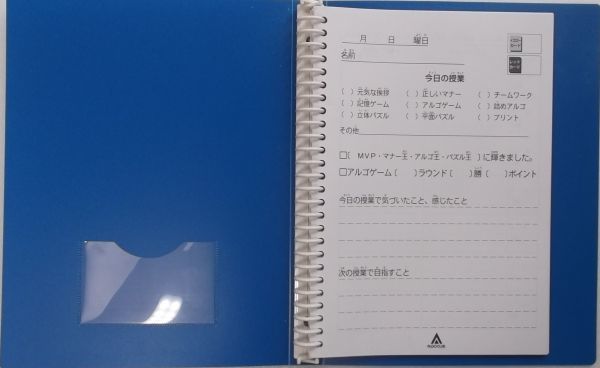 月 日 曜日
イエローカード
名前
レッドカード
今日の授業
( ) 元気な挨拶 ( ) 正しいマナー ( ) チームワーク
( ) 記憶ゲーム ( ) アルゴゲーム ( ) 詰めアルゴ
( ) 立体パズル ( ) 平面パズル ( ) プリント
その他
□( MVP・マナー王・アルゴ王・パズル王 )に輝きました。
□アルゴゲーム ( )ラウンド ( )勝 ( )ポイント
今日の授業で気づいたこと、感じたこと
次の授業で目指すこと